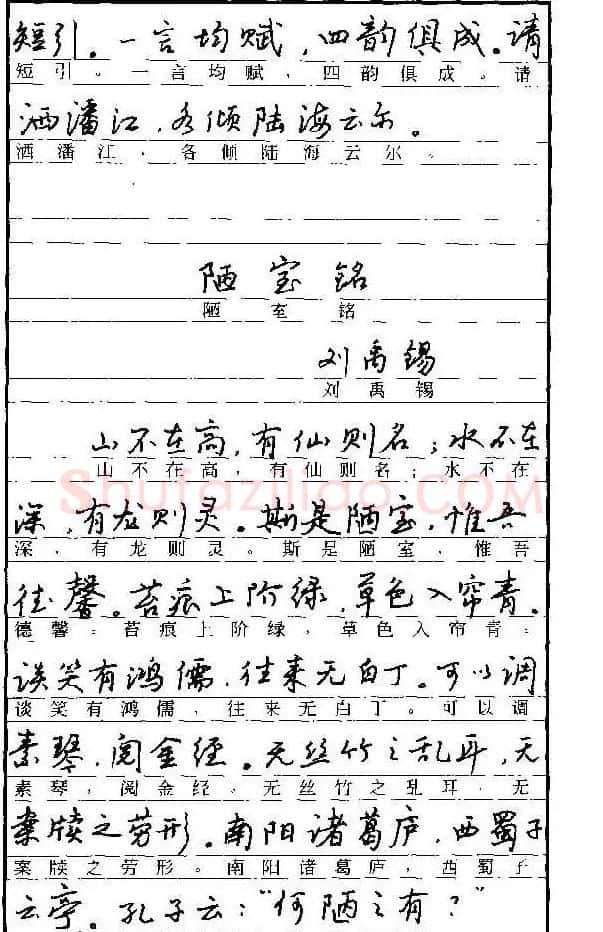 短引。一言均赋，四韵俱成。请
短引。一言均赋，四韵俱成。请
洒潘江，各倾陆海云尔。
洒潘江，各倾陆海云尔。
陋室铭
陋室铭
刘禹锡
刘禹锡
山不在高，有仙则名；水不在
山不在高，有仙则名；水不在
Shufaziliao.COM
深，有龙则灵。斯是陋室，惟吾
深，有龙则灵。斯是陋室，惟吾
德馨。苔痕上阶绿，草色入帘青。
德馨。苔痕上阶绿，草色入帘青。
谈笑有鸿儒，往来无白丁。可以调
谈笑有鸿儒，往来无白丁。可以调
素琴，阅金经。无丝竹之乱耳，无
素琴，阅金经。无丝竹之乱耳，无
案牍之劳形。南阳诸葛庐，西蜀子
案牍之劳形。南阳诸葛庐，西蜀子
云亭。孔子云："何陋之有？"